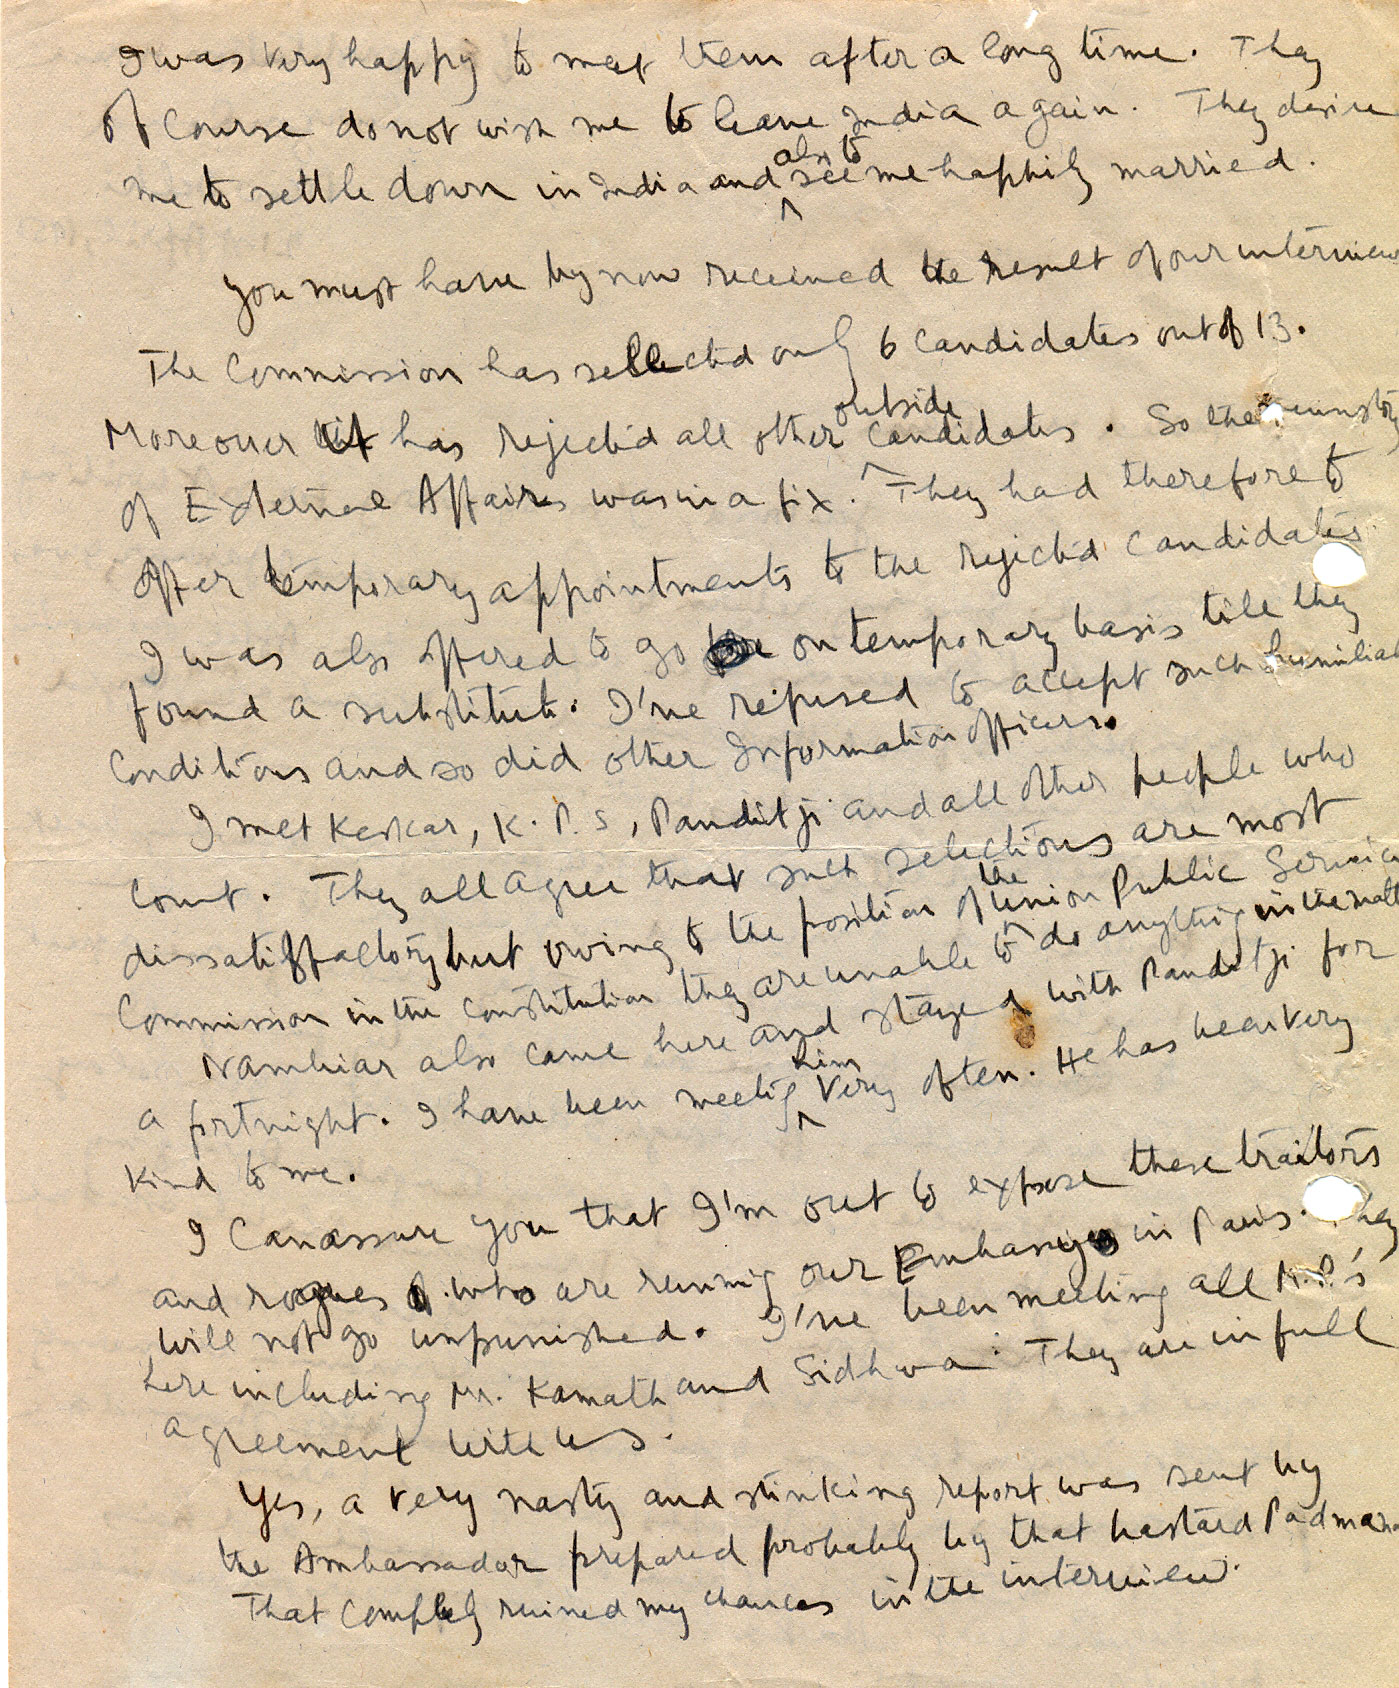 I was very happy to meet them after a long time. They
of course do not wish me to leave India again. They desire
me to settle down in India and also to see me happily married.
You must have by now received the result of our interview
The Commission has selected only 6 candidates out of 13.
Moreover it has rejected all other outside candidates. So the ministry
of External Affairs was in a fix. They had therefore to
offer temporary appointments to the rejected candidates
I was also offered to go on temporary basis till they
found a substitute. I've refused to accept such humiliat
conditions and so did other Information officers.
I met Keskar, K.P.S, Panditji and all other people who
count. They all agree that such selections are most
dissatisffactory but owing to the position of the Union Public Service
Commission in the Constitution they are unable to do anything in the matt
Nambiar also came here and stayed with Panditji for
a fortnight. I have been meeting him very often. He has been very
kind to me.
I can assure you that I'm out to expose these traitors
and rogues who are running our Embassy in Paris. They
will not go unpunished. I've been meeting all M.P.'s
here including Mr. Kamath and Sidhwa. They are in full
agreement with us.
Yes, a very nasty and stinking report was sent by
the Ambassador prepared probably by that bastard Padmana
That complely ruined my chances in the interview.